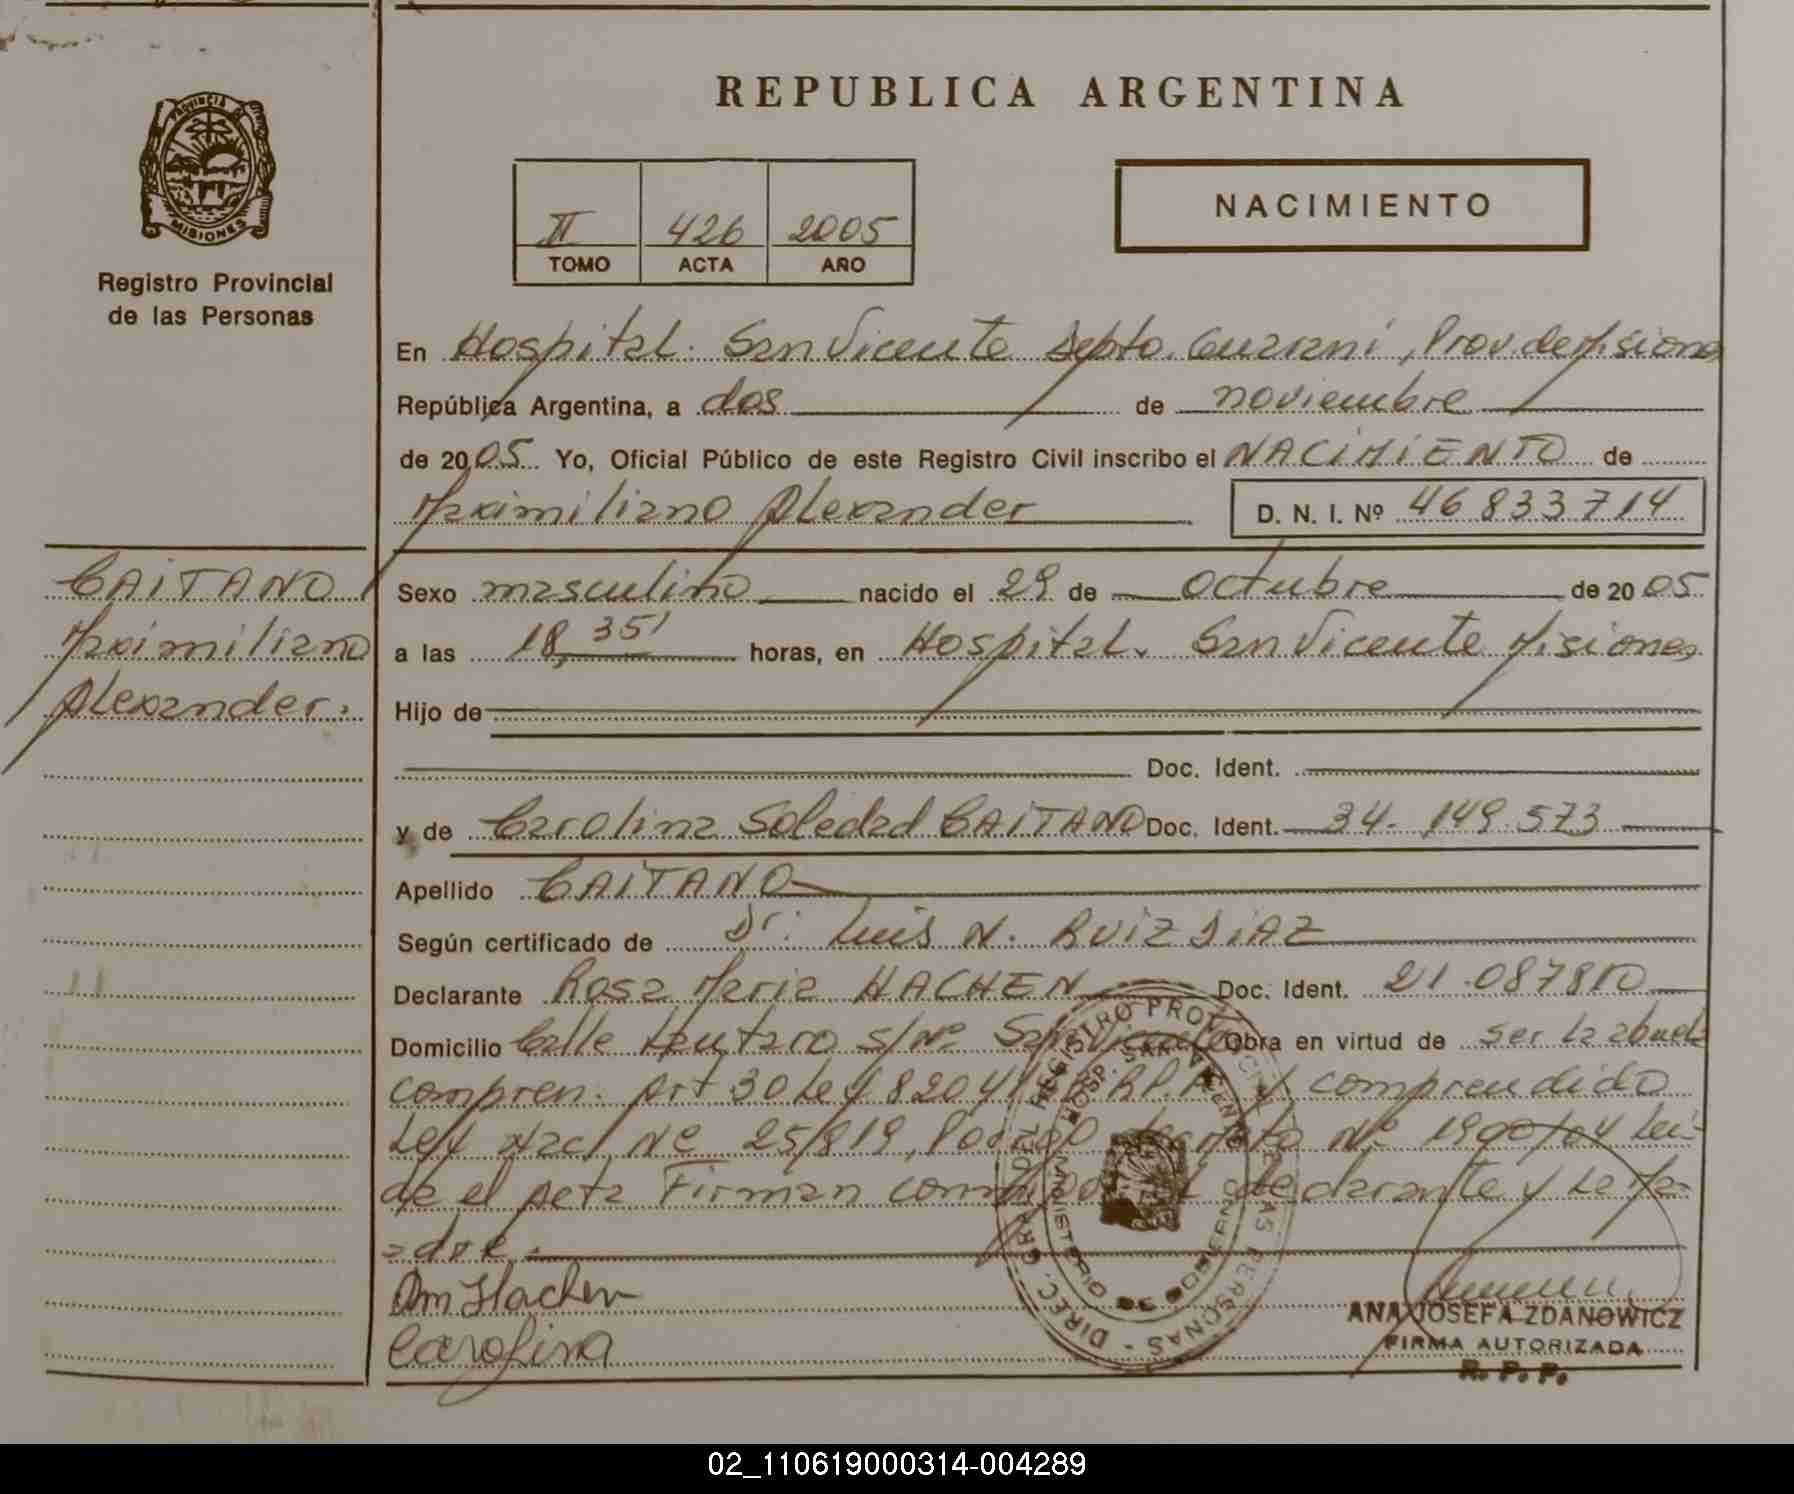 REPUBLICA ARGENTINA
PROVINCIA DE MISIONES
Registro Provincial
de las Personas
II 426 2005
TOMO ACTA AÑO
NACIMIENTO
En Hospital. San Vicente Depto. Guaraní, Prov. de Misiones
República Argentina, a dos de noviembre
de 2005 Yo, Oficial Público de este Registro Civil inscribo el NACIMIENTO de
Maximiliano Alexander D. N. I. Nº 46833714
CAITANO
Maximiliano
Alexander.
Sexo masculino nacido el 29 de octubre de 2005
a las 18,35' horas, en Hospital. San Vicente Misiones
Hijo de
Doc. Ident.
y de Carolina Soledad CAITANO Doc. Ident. 34.149.573
Apellido CAITANO
Según certificado de Dr. Luis N. RUIZ DIAZ
Declarante Rosa Maria HACHEN Doc. Ident. 21.087810
Domicilio Calle Lautaro s/Nº San Vicente Obra en virtud de ser la abuela
compren. Art 30 Ley 8204/ R.P.P. y comprendido
Ley Nac. Nº 25/819, Decreto Nº 190/04 Lei-
da el acta Firman conmigo declarante y la Ma-
=dre.-
Am Hachen
Carolina
DIREC. GRAL. DEL REGISTRO PROVINCIAL DE LAS PERSONAS
HOSP. SAN VICENTE
MINISTERIO DE GOBIERNO
ANA JOSEFA ZDANOWICZ
FIRMA AUTORIZADA
R. P. P.
02_110619000314-004289